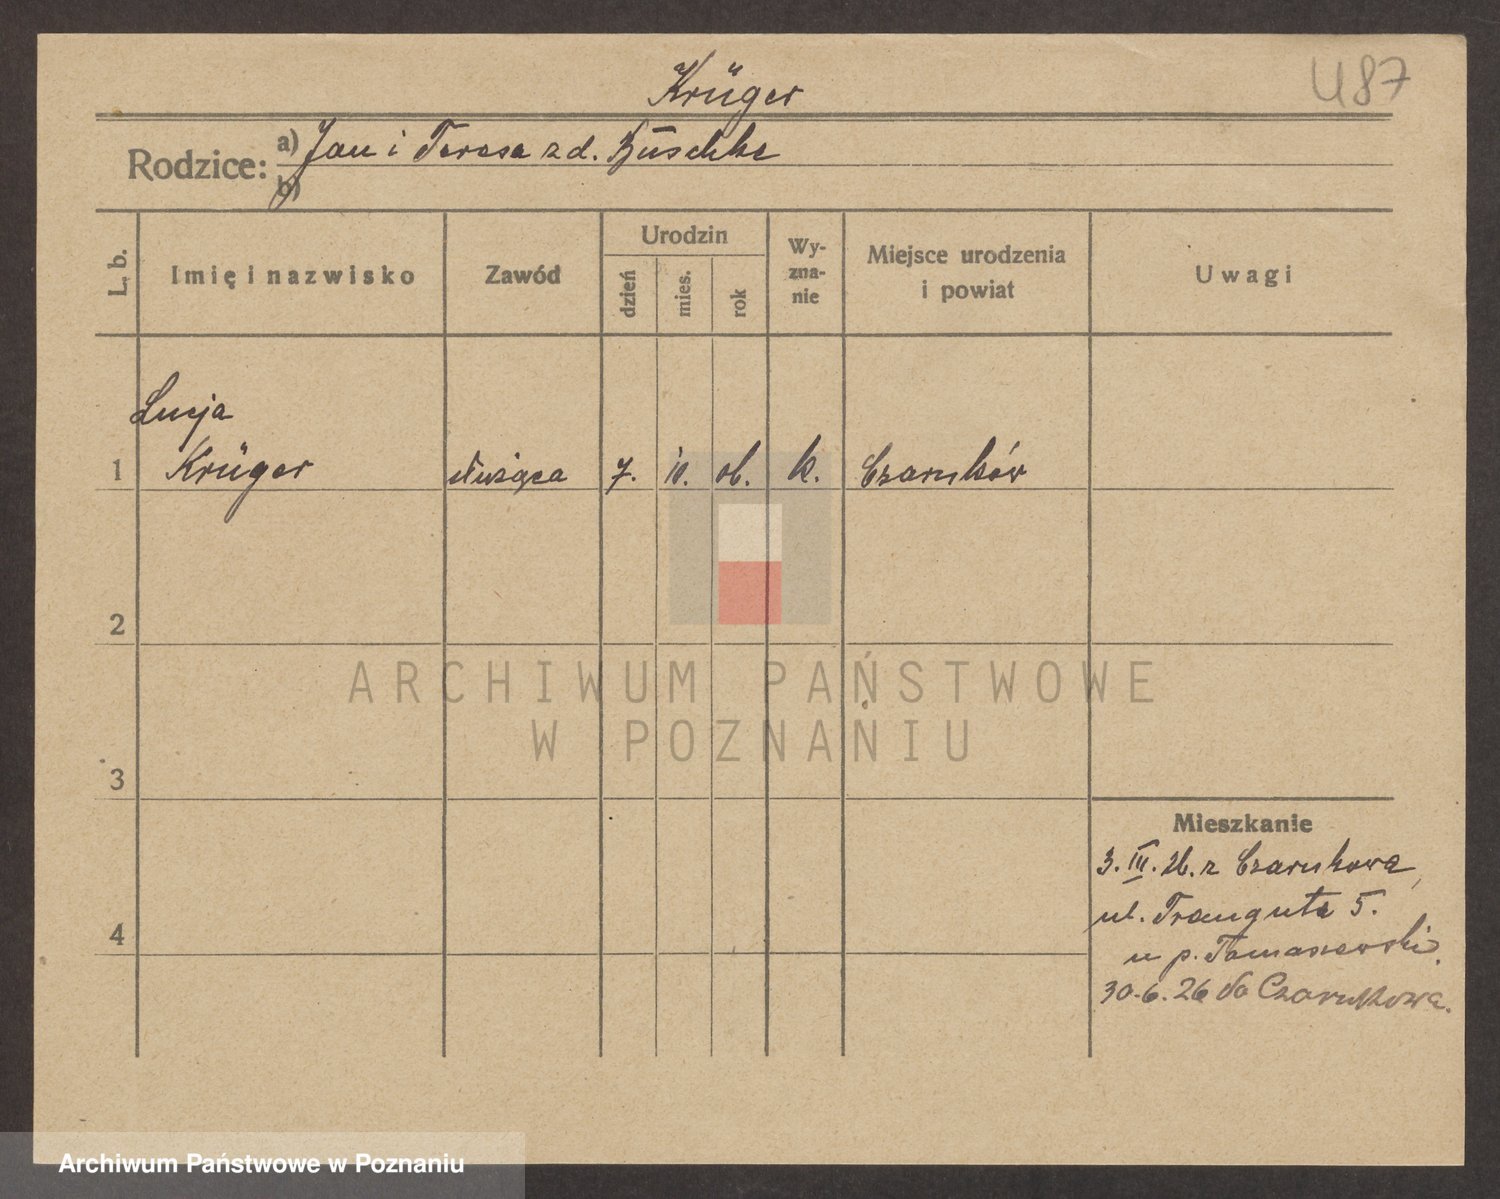 Krüger
U87
Rodzice:
a) Jan i Teresa zd. Büschke
b)
L. b.
Imię i nazwisko
Zawód
Urodzin
dzień
mies.
rok
Wy-
zna-
nie
Miejsce urodzenia
i powiat
Uwagi
Lucja
1 Krüger służąca 7. 10. 06. k. Czarnków
2
3
4
Mieszkanie
3. III. 26. z Czarnkowa,
ul. Trauguta 5.
u p. Tomaszewski.
30.6.26 do Czarnkowa.
ARCHIWUM PAŃSTWOWE
W POZNANIU
Archiwum Państwowe w Poznaniu